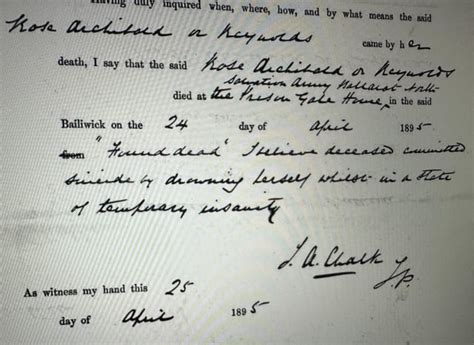 Having duly inquired when, where, how, and by what means the said
Rose Archibald or Reynolds
came by her
death, I say that the said Rose Archibald or Reynolds
Salvation Army Ballarat North
died at the Prison Gate Home, in the said
Bailiwick on the 24 day of April 1895
from "Found dead" I believe deceased committed
suicide by drowning herself whilst in a state
of temporary insanity
J. A. Chalk J.P.
As witness my hand this 25
day of April 1895